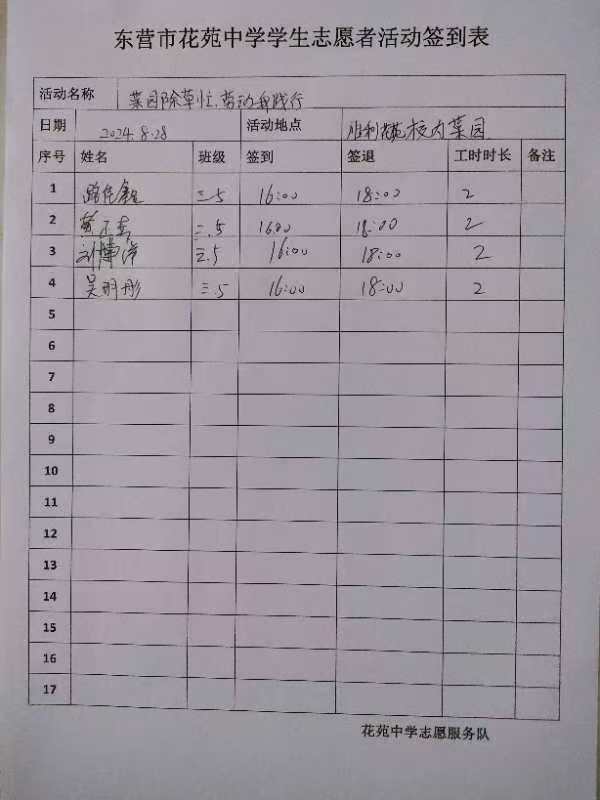 东营市花苑中学学生志愿者活动签到表
活动名称 菜园除草忙,劳动我践行
日期 2024.8.28 活动地点 胜利花苑校内菜园
序号 姓名 班级 签到 签退 工时时长 备注
1 三.5 16:00 18:00 2
2 三.5 1600 18:00 2
3 刘博洋 三.5 16:00 18:00 2
4 吴明彤 三.5 16:00 18:00 2
5
6
7
8
9
10
11
12
13
14
15
16
17
花苑中学志愿服务队